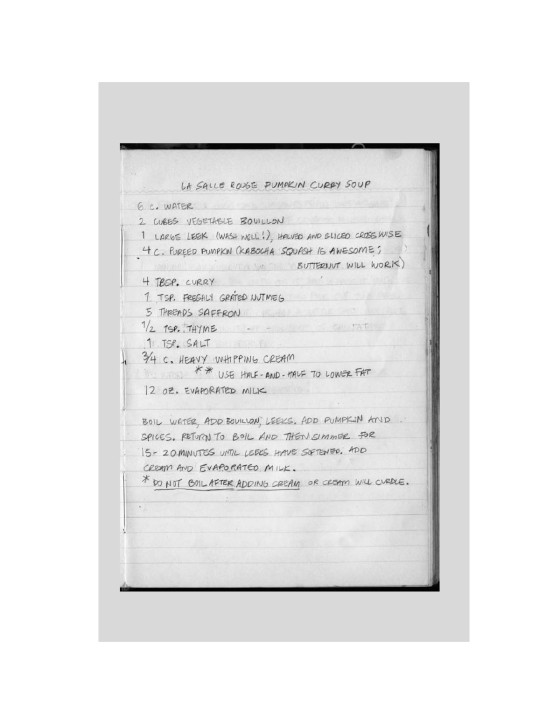 LA SALLE ROUGE PUMPKIN CURRY SOUP
6 C. WATER
2 CUBES VEGETABLE BOUILLON
1 LARGE LEEK (WASH WELL!), HALVED AND SLICED CROSSWISE
4 C. PUREED PUMPKIN (KABOCHA SQUASH IS AWESOME;
BUTTERNUT WILL WORK)
4 TBSP. CURRY
1 TSP. FRESHLY GRATED NUTMEG
5 THREADS SAFFRON
1/2 TSP. THYME
1 TSP. SALT
3/4 C. HEAVY WHIPPING CREAM
** USE HALF-AND-HALF TO LOWER FAT
12 OZ. EVAPORATED MILK
BOIL WATER, ADD BOUILLON, LEEKS. ADD PUMPKIN AND
SPICES. RETURN TO BOIL AND THEN SIMMER FOR
15-20 MINUTES UNTIL LEEKS HAVE SOFTENED. ADD
CREAM AND EVAPORATED MILK.
* DO NOT BOIL AFTER ADDING CREAM OR CREAM WILL CURDLE.